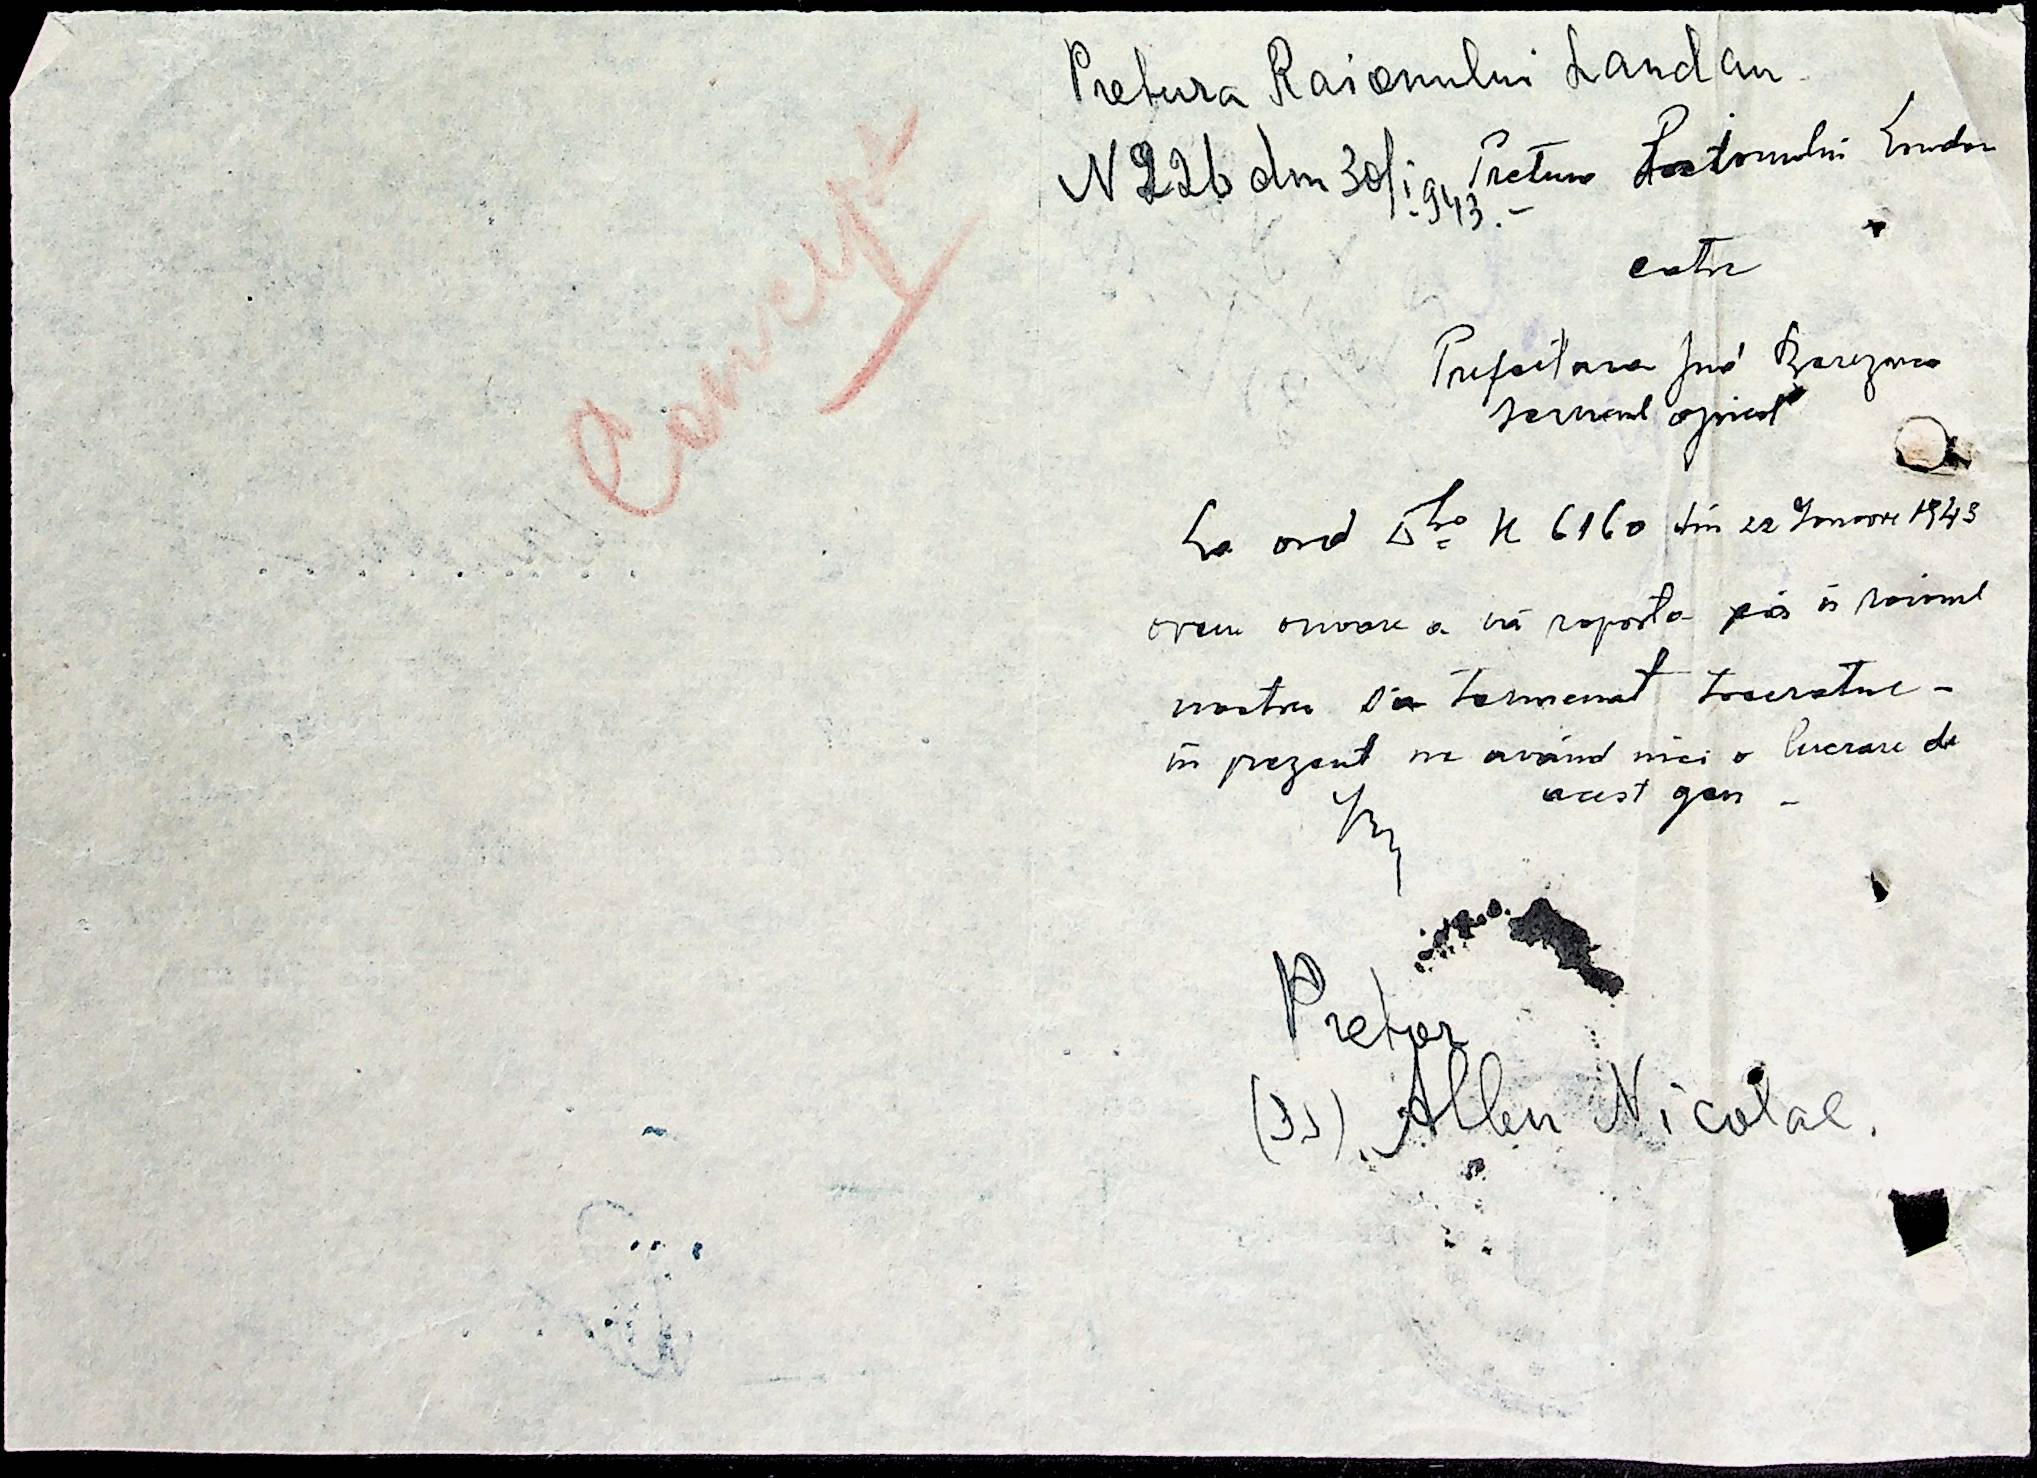 Concept
Pretura Raionului Landau
N 226 din 30/I. 943.-
Pretura Raionului Landau
catre
Prefectura Jud Berezovca
serviciul agricol
La ord Dvs N 6160 din 22 Ianuarie 1943
avem onoare a vă raporta că în raionul
nostru s'a terminat treeratul -
în prezent ne având nici o lucrare de
acest gen -
Pretor
(ss) Alben Nicolae.